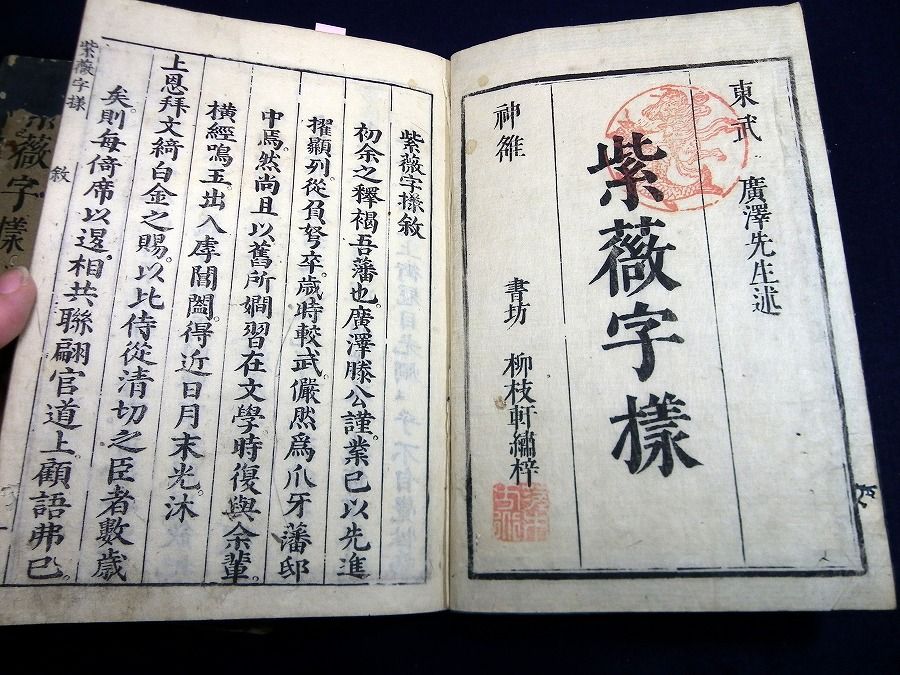 東武 廣澤先生述
紫薇字樣
神雒 書坊 柳枝軒繡梓
紫薇字樣敘
初余之釋褐吾藩也。廣澤滕公謹業已以先進
擢顯列。從負弩卒。歲時較武。儼然爲爪牙藩邸
中焉。然尚且以舊所嫺習在文學時復與余輩。
橫經鳴玉。出入虖閶闔。得近日月末光。沐
上恩拜文綺白金之賜。以比侍從淸切之臣者數歲
矣。則每倚席以退。相共聯翩官道上顧語弗已。
紫薇字樣
敘
薇字樣